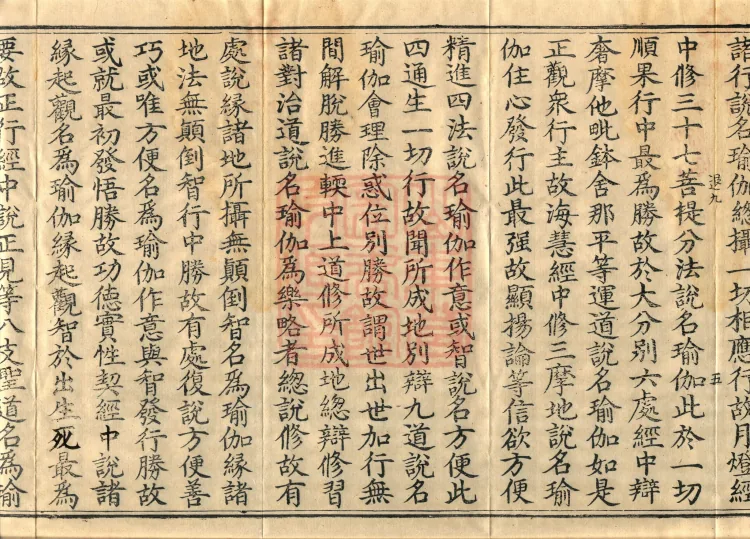 諸行說名瑜伽緫攝一切相應行故月燈經
中修三十七菩提分法說名瑜伽此於一切
順果行中最爲勝故於大分別六處經中辯
奢摩他毗鉢舍那平等運道說名瑜伽如是
正觀衆行主故海慧經中修三摩地說名瑜
伽住心發行此最强故顯揚論等信欲方便
精進四法說名瑜伽作意或智說名方便此
四通生一切行故聞所成地別辯九道說名
瑜伽會理除惑位別勝故謂世出世加行無
間解脫勝進輭中上道修所成地緫辯修習
諸對治道說名瑜伽爲樂略者緫說修故有
處說緣諸地所攝無顛倒智名爲瑜伽緣諸
地法無顛倒智行中勝故有處復說方便善
巧或唯方便名爲瑜伽作意與智發行勝故
或就最初發悟勝故功德實性契經中說諸
緣起觀名爲瑜伽緣起觀智於出生死最爲
要故正行經中說正見等八支聖道名爲瑜
退九
五